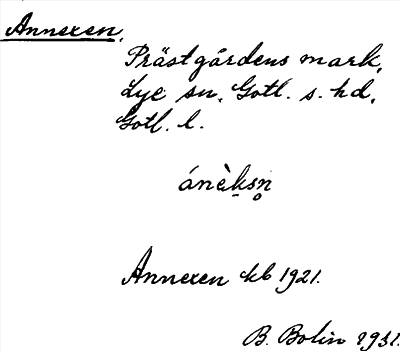 Annexen.
Prästgårdens mark,
Lye sn. Gotl. s. hd,
Gotl. l.
ánèksn̥
Annexen kb 1921.
B. Bolin 1931.